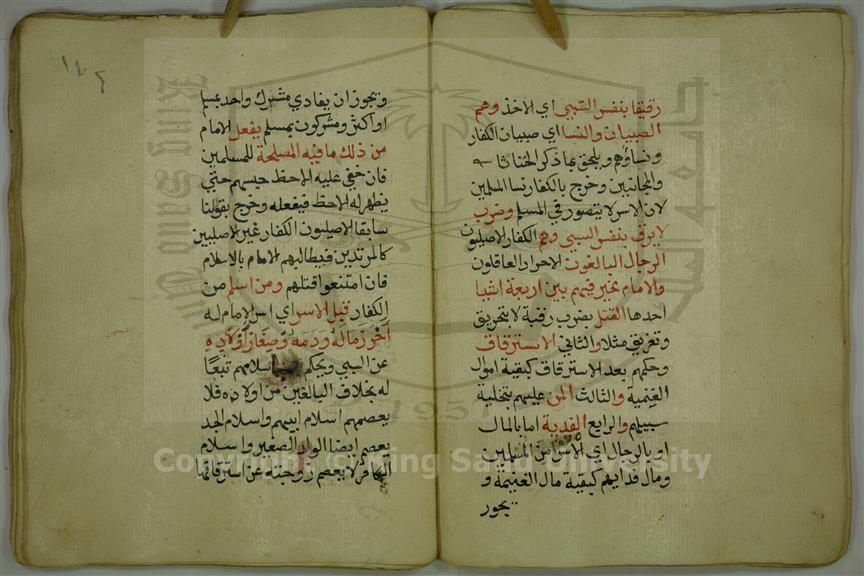 رقيقا بنفس السبي اي الاخذ وهم
الصبيان والنسا اي صبيان الكفار
ونساؤهم ويلحق بما ذكر الخناثا
والمجانين وخرج بالكفار نسا المسلمين
لان الاسر لا يتصور في المسلم وضرب
لا يرق بنفس السبي وهم الكفار الاصليون
الرجال البالغون الاحرار العاقلون
والامام مخير فيهم بين اربعة اشيا
احدها القتل بضرب رقبة لا بتحريق
وتغريق مثلا والثاني الاسترقاق
وحكمهم بعد الاسترقاق كبقية اموال
الغنيمة والثالث المن عليهم بتخلية
سبيلهم والرابع الفدية اما بالمال
او بالرجال اي الاسرا من المسلمين
ومال فدايهم كبقية مال الغنيمة و
يجوز
١٧٤
ويجوز ان يفادي مشرك واحد بمسلم
او اكثر ومشركون بمسلم يفعل الامام
من ذلك ما فيه المصلحة للمسلمين
فان خفي عليه الاحظ حبسهم حتي
يظهر له الاحظ فيفعله وخرج بقولنا
سابقا الاصليون الكفار غير الاصليين
كالمرتدين فيطالبهم الامام بالاسلام
فان امتنعوا قتلهم ومن اسلم من
الكفار قبل الاسر اي اسر الامام له
احرز ماله ودمه وصغار اولاده
عن السبي ويحكم باسلامهم تبعا
له بخلاف البالغين من اولاده فلا
يعصمهم اسلام ابيهم واسلام الجد
يعصم ايضا الولد الصغير واسلام
الكافر لا يعصم زوجته عن استرقاقها
جامعة
King Saud University
1957
Copyright © King Saud University